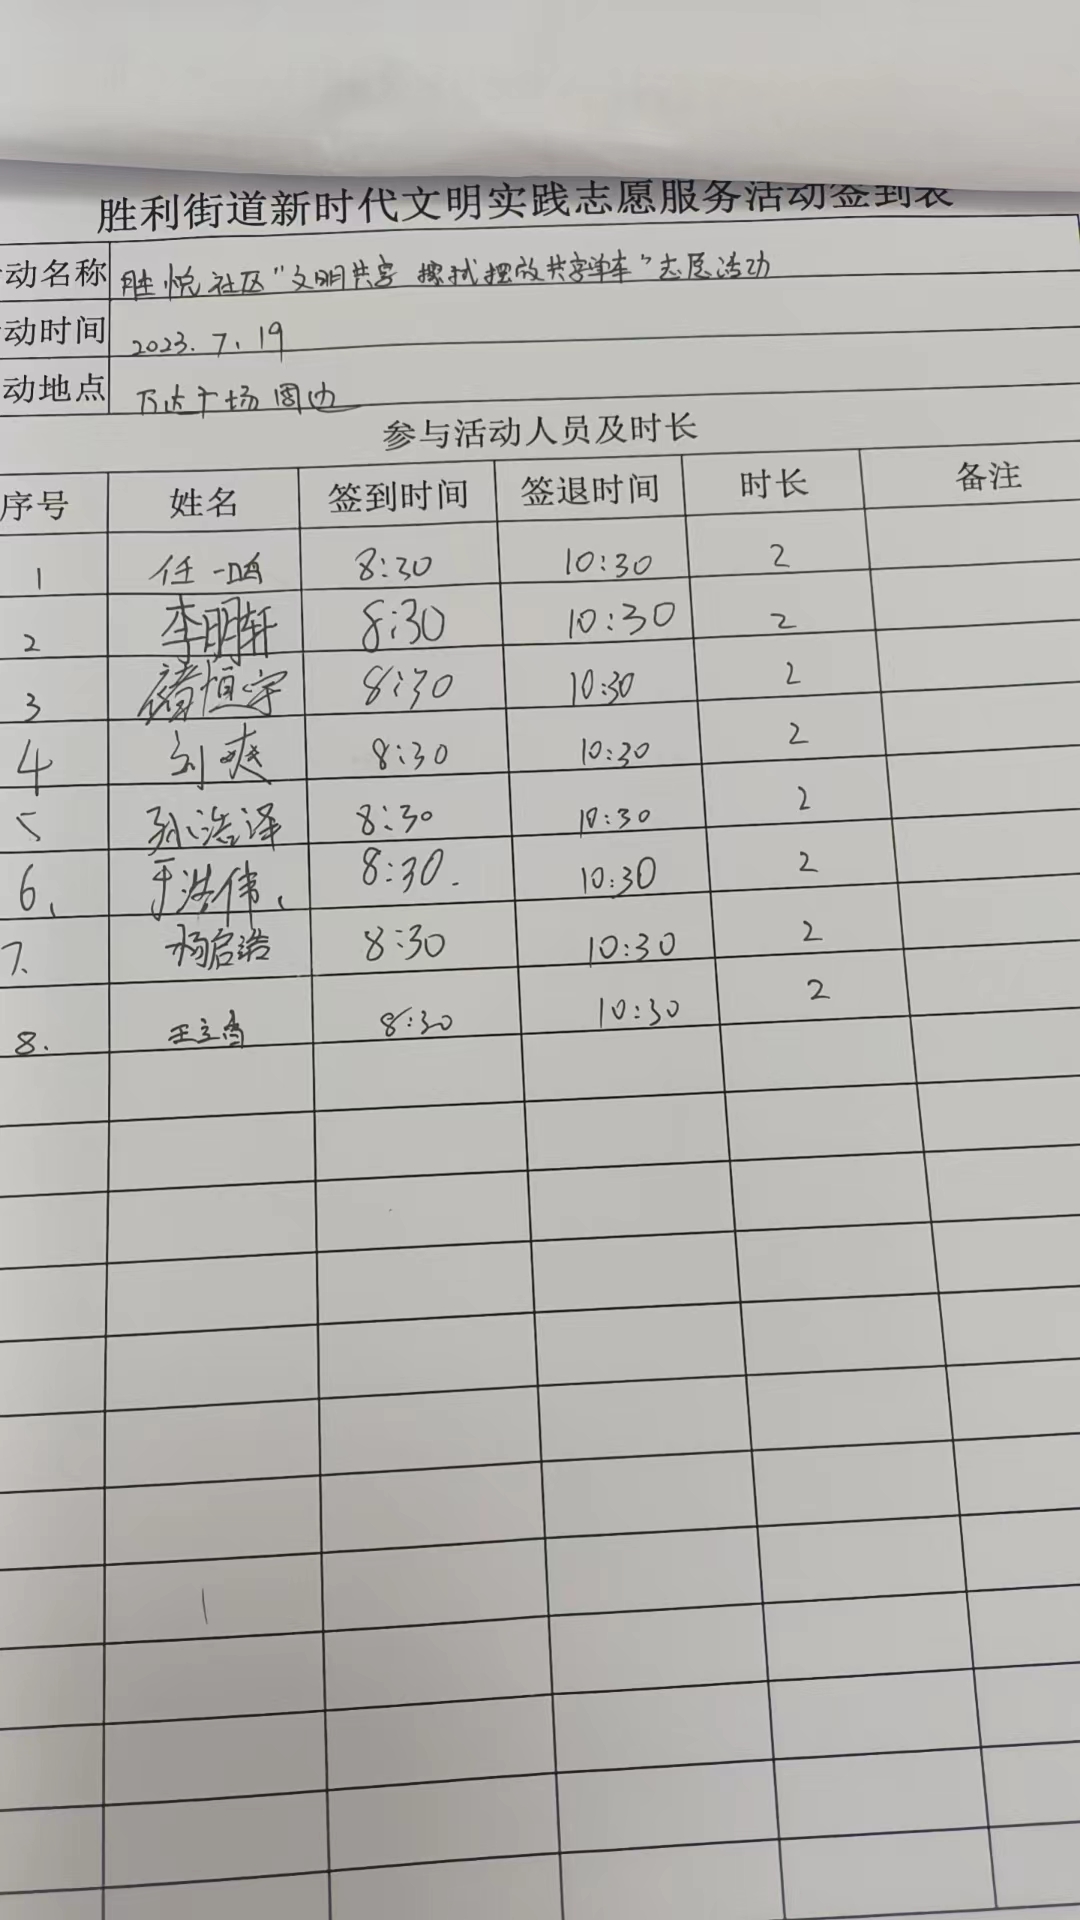 胜利街道新时代文明实践志愿服务活动签到表
动名称 胜悦社区"文明共享 擦拭摆放共享单车"志愿活动
动时间 2023.7.19
动地点 万达广场周边
参与活动人员及时长
序号 姓名 签到时间 签退时间 时长 备注
1 任一鸣 8:30 10:30 2
2 李明轩 8:30 10:30 2
3 褚恒宇 8:30 10:30 2
4 刘爽 8:30 10:30 2
5 孙浩泽 8:30 10:30 2
6、 于洪伟、 8:30. 10:30 2
7. 杨启浩 8:30 10:30 2
8. 8:30 10:30 2